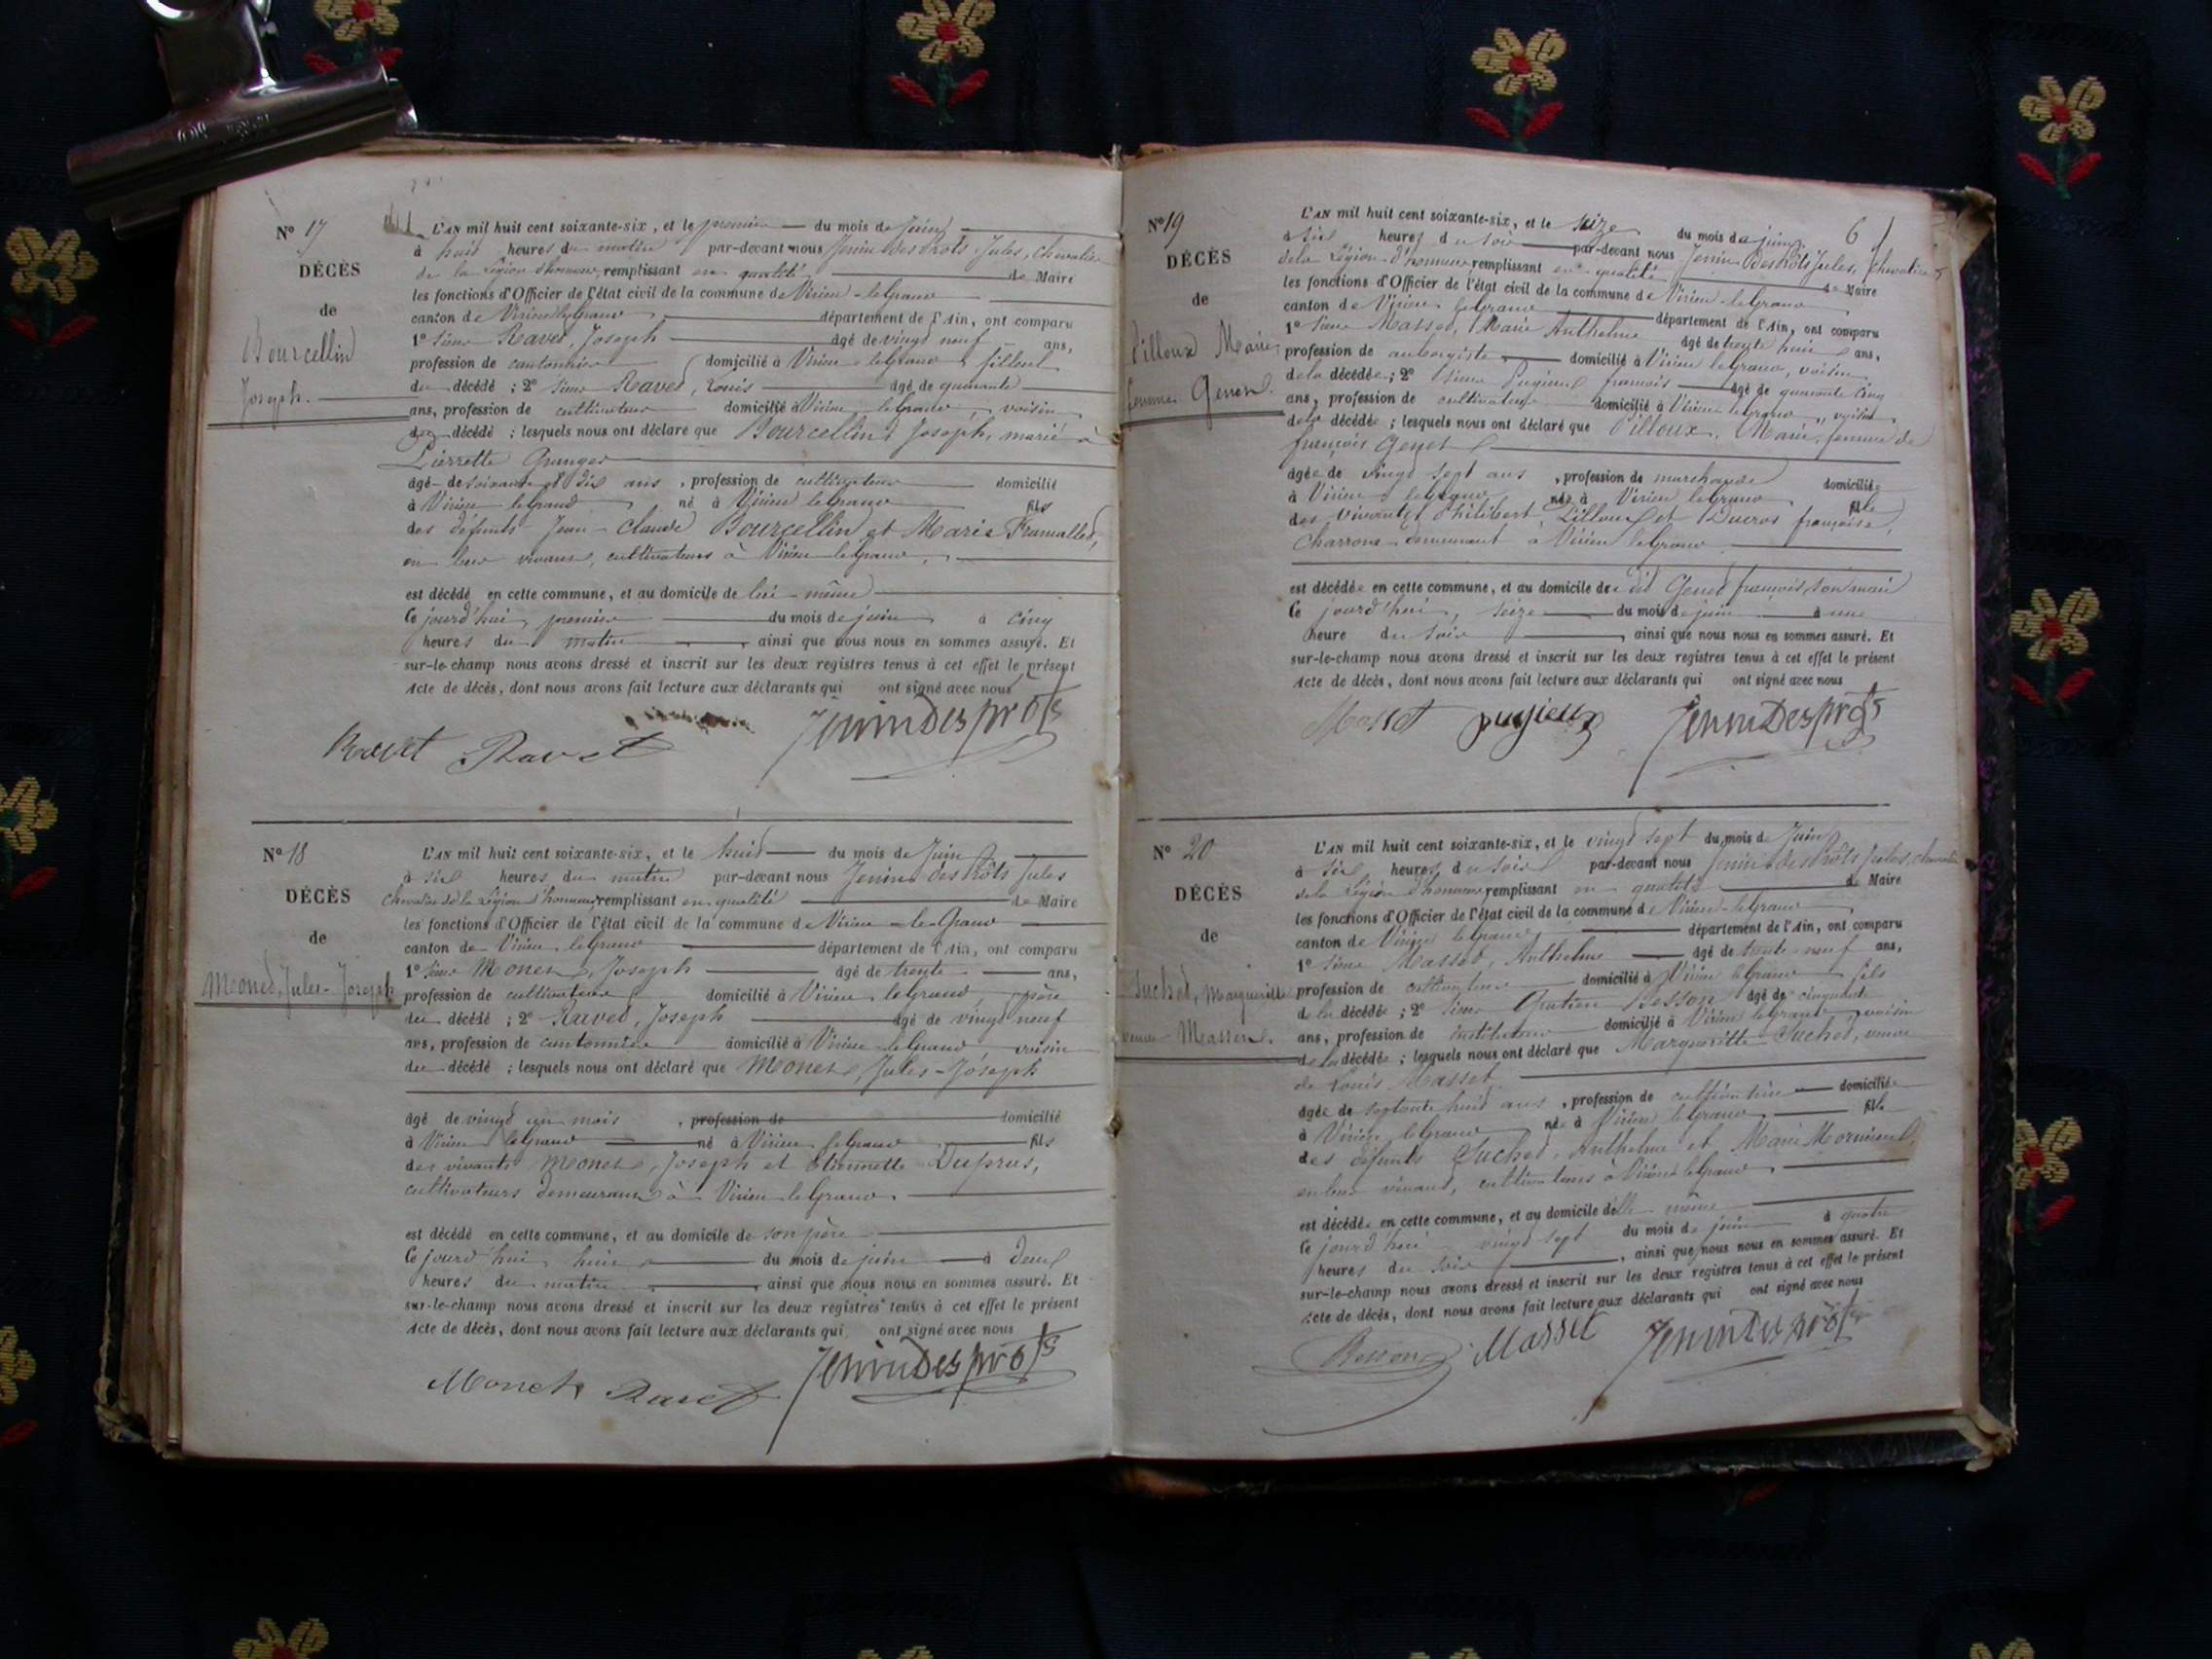 N° 17
DÉCÈS
de
Bourcellin
Joseph.
L'AN mil huit cent soixante-six, et le premier du mois de juin
à huit heures du matin par-devant nous Jenin des prôts Jules, chevalier
de la Légion d'honneur, remplissant en qualité de Maire
les fonctions d'Officier de l'état civil de la commune de Virieu-le-Grand
canton de Virieu le Grand département de l'Ain, ont comparu
1° sieur Ravet, Joseph âgé de vingt neuf ans,
profession de cantonnier domicilié à Virieu-le-Grand filleul
du décédé ; 2° sieur Ravet, Louis âgé de quarante
ans, profession de cultivateur domicilié à Virieu le Grand, voisin
du décédé ; lesquels nous ont déclaré que Bourcellin Joseph, marié à
Pierrette Granger
âgé de soixante et dix ans, profession de cultivateur domicilié
à Virieu le Grand né à Virieu le Grand fils
des défunts Jean-Claude Bourcellin et Marie
en leur vivant, cultivateurs à Virieu-le-Grand,
est décédé en cette commune, et au domicile de lui-même
le jourd'hui, premier du mois de juin à cinq
heures du matin, ainsi que nous nous en sommes assuré. Et
sur-le-champ nous avons dressé et inscrit sur les deux registres tenus à cet effet le présent
Acte de décès, dont nous avons fait lecture aux déclarants qui ont signé avec nous
Ravet Ravet Jenin Desprôts
N° 18
DÉCÈS
de
Monet, Jules-Joseph
L'AN mil huit cent soixante-six, et le huit du mois de Juin
à six heures du matin par-devant nous Jenin des prôts Jules
chevalier de la Légion d'honneur remplissant en qualité de Maire
les fonctions d'Officier de l'état civil de la commune de Virieu-le-Grand
canton de Virieu le Grand département de l'Ain, ont comparu
1° sieur Monet, Joseph âgé de trente ans,
profession de cultivateur domicilié à Virieu le Grand, père
du décédé ; 2° Ravet, Joseph âgé de vingt neuf
ans, profession de cantonnier domicilié à Virieu-le-Grand voisin
du décédé ; lesquels nous ont déclaré que Monet, Jules-Joseph
âgé de vingt un mois, profession de domicilié
à Virieu le Grand né à Virieu le Grand fils
des vivants Monet, Joseph et Etiennette
cultivateurs demeurant à Virieu-le-Grand.
est décédé en cette commune, et au domicile de son père
le jourd'hui huit du mois de juin à deux
heures du matin, ainsi que nous nous en sommes assuré. Et
sur-le-champ nous avons dressé et inscrit sur les deux registres tenus à cet effet le présent
Acte de décès, dont nous avons fait lecture aux déclarants qui ont signé avec nous
Monet Ravet Jenin Desprôts
6
N° 19
DÉCÈS
de
Pilloux Marie
femme Genet.
L'AN mil huit cent soixante-six, et le seize du mois de juin
à six heures du soir par-devant nous Jenin des prôts Jules, Chevalier
de la Légion d'honneur remplissant en qualité de Maire
les fonctions d'Officier de l'état civil de la commune de Virieu-le-Grand
canton de Virieu le Grand département de l'Ain, ont comparu
1° sieur Masset, Marie Anthelme âgé de trente huit ans,
profession de aubergiste domicilié à Virieu le Grand, voisin
de la décédée ; 2° sieur Pugieux françois âgé de quarante cinq
ans, profession de cultivateur domicilié à Virieu le Grand, voisin
de la décédée ; lesquels nous ont déclaré que Pilloux, Marie, femme de
françois Genet
âgée de vingt sept ans, profession de marchande domiciliée
à Virieu le Grand, née à Virieu le Grand fille
des vivants Philibert Pilloux et Ducros françoise,
Charrons demeurant à Virieu le Grand
est décédée en cette commune, et au domicile du dit Genet françois son mari
le jourd'hui, seize du mois de juin à une
heure du soir, ainsi que nous nous en sommes assuré. Et
sur-le-champ nous avons dressé et inscrit sur les deux registres tenus à cet effet le présent
Acte de décès, dont nous avons fait lecture aux déclarants qui ont signé avec nous
Masset pugieux Jenin Desprôts
N° 20
DÉCÈS
de
Suchet, Marguerite
veuve Masset.
L'AN mil huit cent soixante-six, et le vingt sept du mois de Juin
à six heures du soir par-devant nous Jenin des prôts Jules, chevalier
de la Légion d'honneur remplissant en qualité de Maire
les fonctions d'Officier de l'état civil de la commune de Virieu-le-Grand
canton de Virieu le Grand, département de l'Ain, ont comparu
1° sieur Masset, Anthelme âgé de trente neuf ans,
profession de cultivateur domicilié à Virieu le Grand fils
de la décédée ; 2° sieur Gratien Besson âgé de cinquante
ans, profession de instituteur domicilié à Virieu le Grand voisin
de la décédée ; lesquels nous ont déclaré que Margueritte Suchet, veuve
de Louis Masset,
âgée de septante huit ans, profession de cultivatrice domiciliée
à Virieu le Grand née à Virieu le Grand, fille
des défunts Suchet, Anthelme et Marie
en leur vivant, cultivateurs à Virieu le Grand.
est décédée en cette commune, et au domicile d'elle même
le jourd'hui vingt sept du mois de juin à quatre
heures du soir, ainsi que nous nous en sommes assuré. Et
sur-le-champ nous avons dressé et inscrit sur les deux registres tenus à cet effet le présent
Acte de décès, dont nous avons fait lecture aux déclarants qui ont signé avec nous
Besson Masset Jenin Desprôts